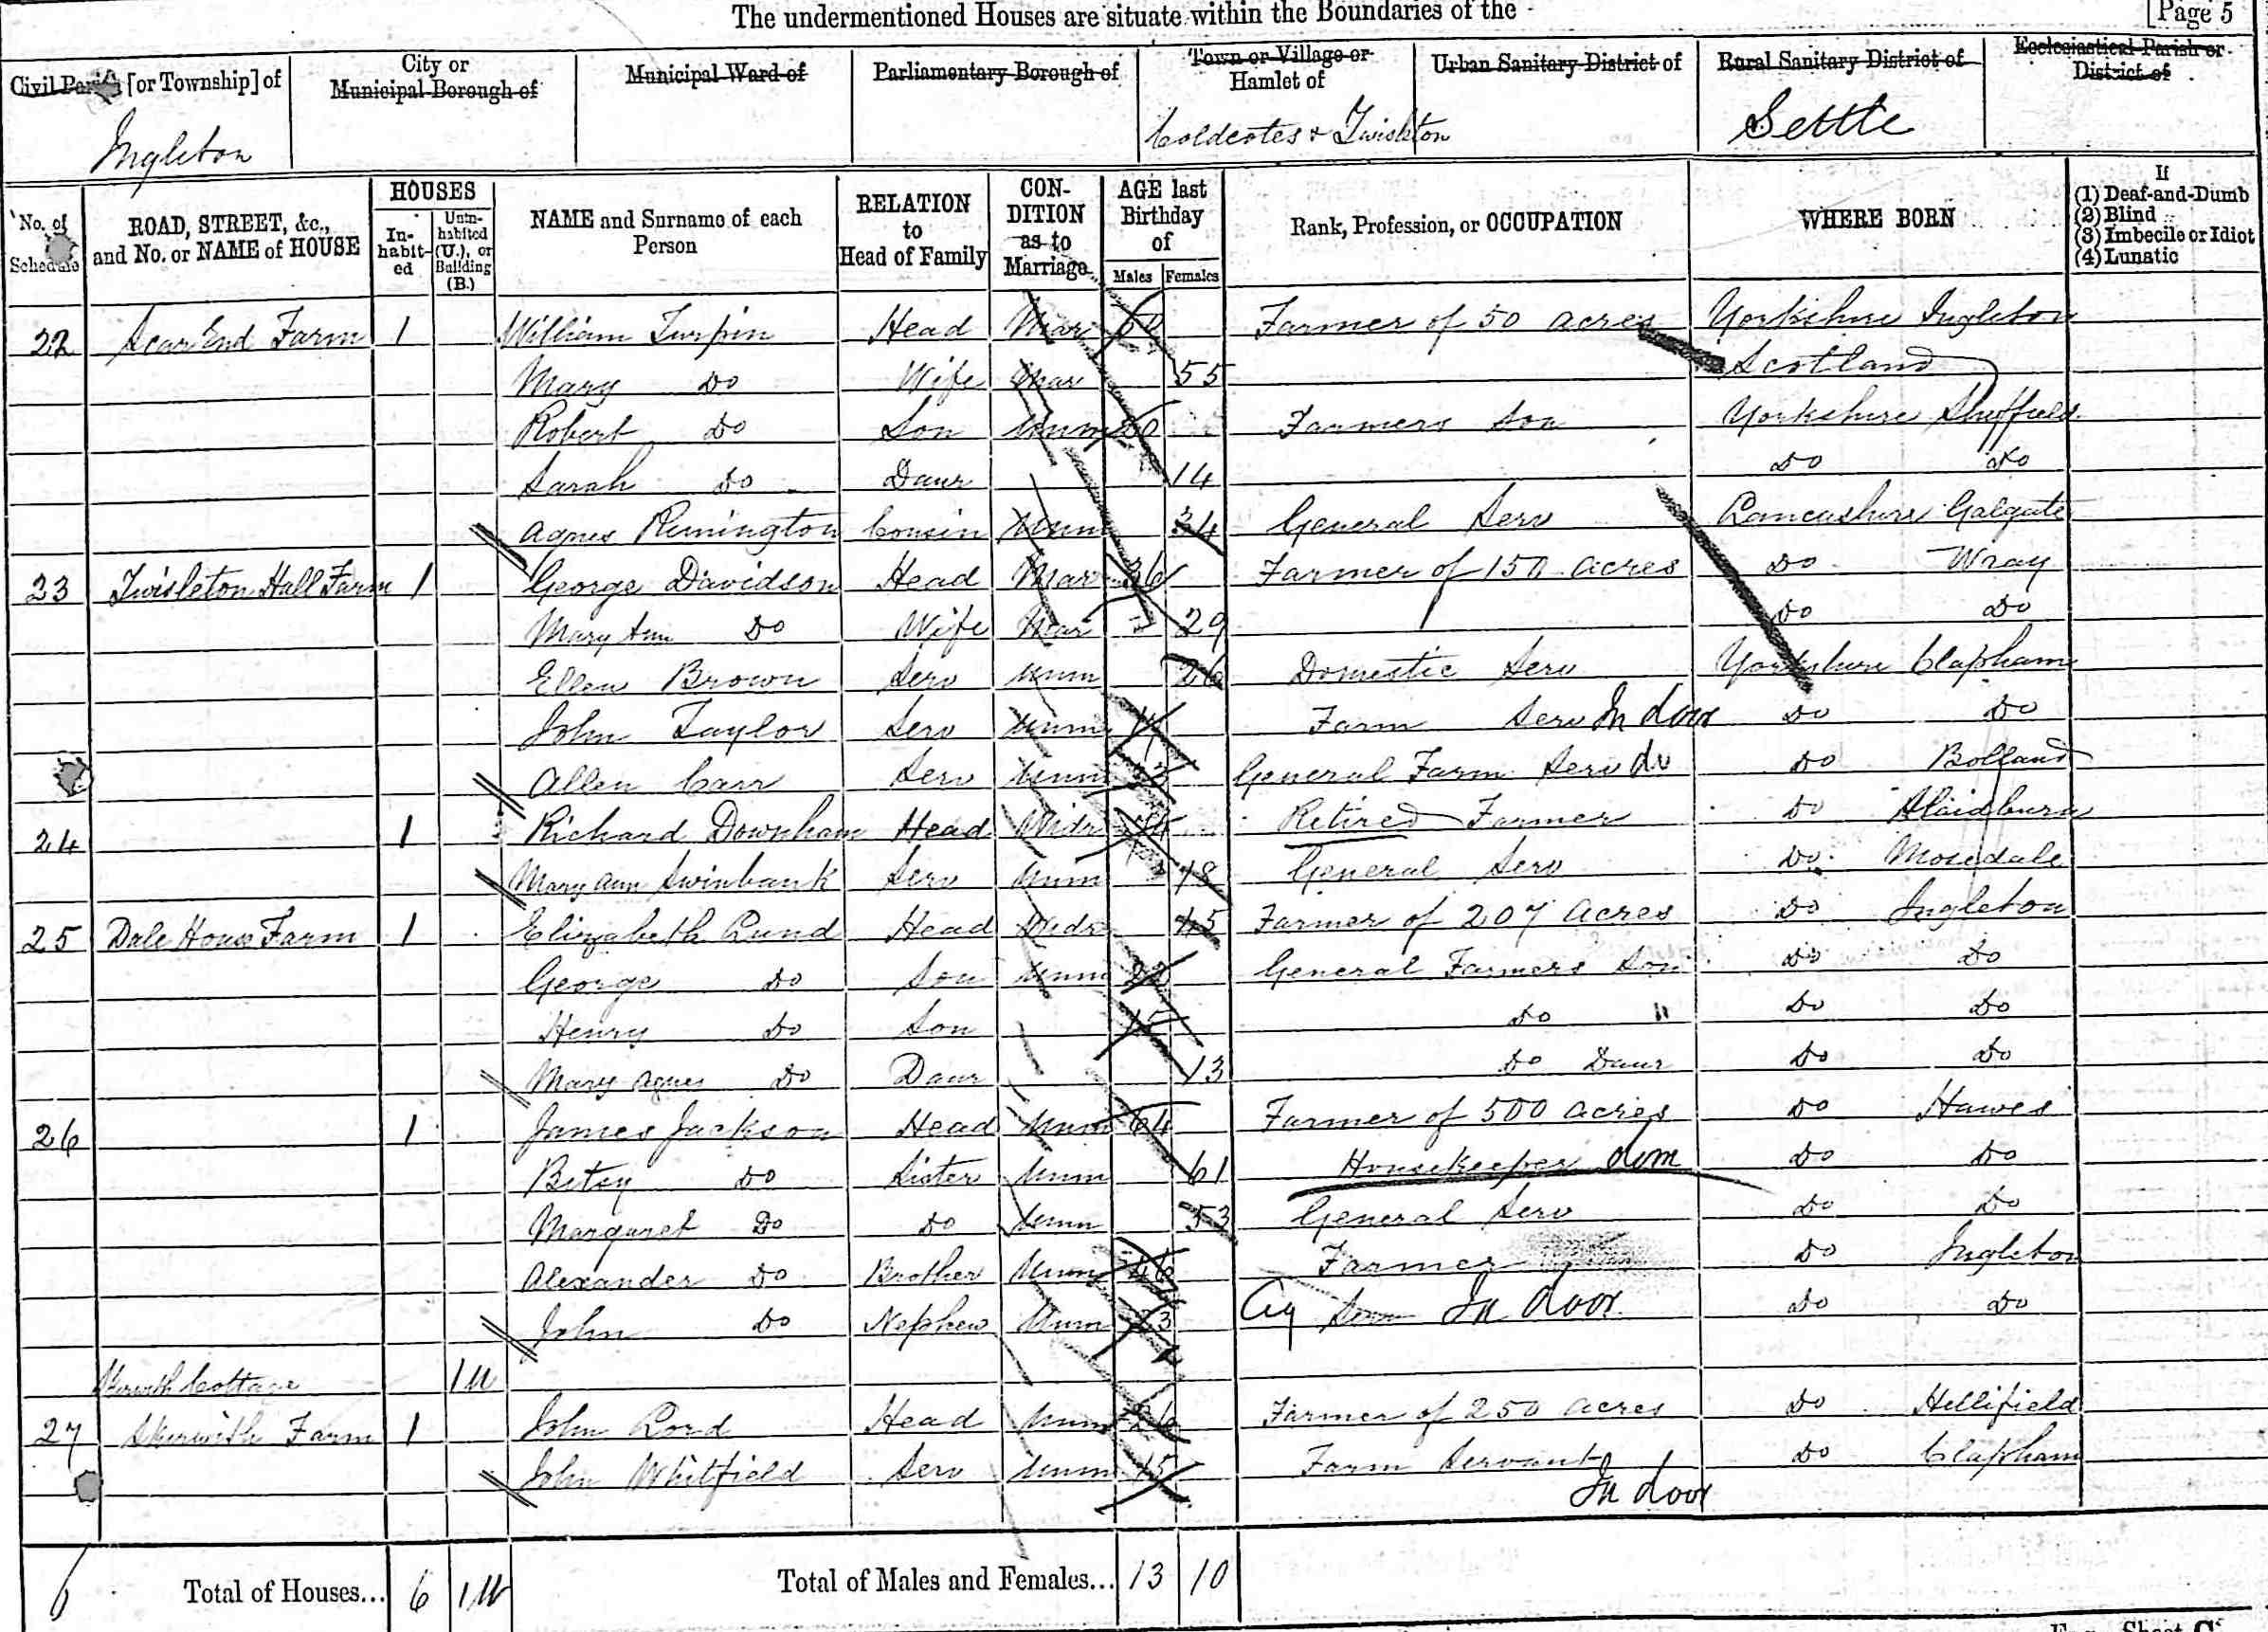 The undermentioned Houses are situate within the Boundaries of the
[Page 5
Civil Parish [or Township] of
City or Municipal Borough of
Municipal Ward of
Parliamentary Borough of
Town or Village or Hamlet of
Urban Sanitary District of
Rural Sanitary District of
Ecclesiastical Parish or District of
Ingleton
Coldcotes & Twisleton
Settle
No. of Schedule
ROAD, STREET, &c., and No. or NAME of HOUSE
HOUSES
In-habit-ed
Unin-habited (U.), or Building (B.)
NAME and Surname of each Person
RELATION to Head of Family
CON-DITION as to Marriage
AGE last Birthday of
Males Females
Rank, Profession, or OCCUPATION
WHERE BORN
If
(1) Deaf-and-Dumb
(2) Blind
(3) Imbecile or Idiot
(4) Lunatic
22 Scar End Farm 1 William Turpin Head Mar Farmer of 50 acres Yorkshire Ingleton
Mary Do Wife Mar 55 Scotland
Robert Do Son Unm Farmers Son Yorkshire Sheffield
Sarah Do Daur 14 Do Do
Agnes Rimington Cousin Unm 34 General Serv Lancashire Galgate
23 Twisleton Hall Farm 1 George Davidson Head Mar 36 Farmer of 150 acres Do Wray
Mary Ann Do Wife Mar 29 Do Do
Ellen Brown Serv Unm 26 Domestic Serv Yorkshire Clapham
John Taylor Serv Unm Farm Serv In door Do Do
Allen Carr Serv Unm General Farm Serv do Do Bolland
24 1 Richard Downham Head Widr Retired Farmer Do Slaidburn
Mary Ann Swinbank Serv Unm 18 General Serv Do Mosedale
25 Dale House Farm 1 Elizabeth Lund Head Widr 45 Farmer of 207 acres Do Ingleton
George Do Son Unm General Farmers Son Do Do
Henry Do Son 15 Do " Do Do
Mary Agnes Do Daur 13 Do Daur Do Do
26 1 James Jackson Head Unm 64 Farmer of 500 acres Do Hawes
Betsy Do Sister Unm 61 Housekeeper dom Do Do
Margaret Do Do Unm 53 General Serv Do Do
Alexander Do Brother Unm 46 Farmer Do Ingleton
John Do Nephew Unm 23 Ag In door Do Do
Skirwith Cottage 1U
27 Skirwith Farm 1 John Lord Head Unm 26 Farmer of 250 acres Do Hellifield
John Whitfield Serv Unm 15 Farm Servant Do Clapham
In door
6 Total of Houses... 6 1U Total of Males and Females... 13 10